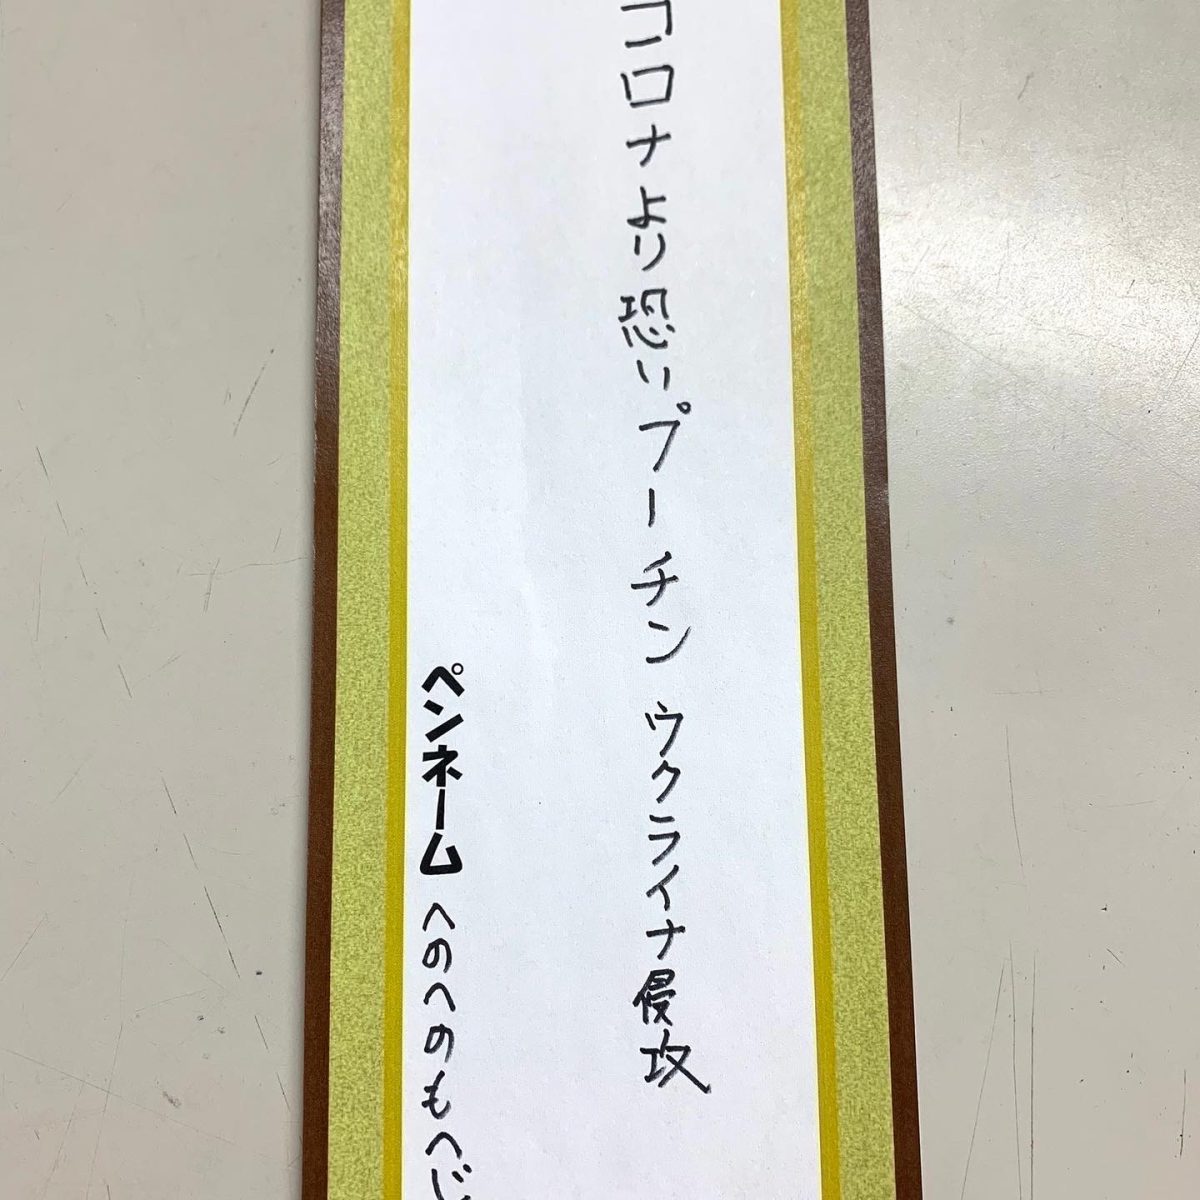 コロナより恐いプーチンウクライナ侵攻
ペンネーム へのへのもへじ